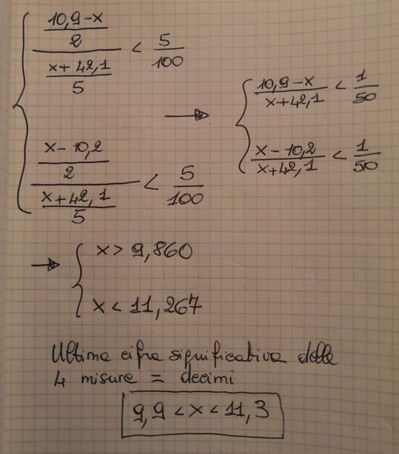 { ((10,9-x)/2)/((x+42,1)/5) < 5/100
((x-10,2)/2)/((x+42,1)/5) < 5/100
→ { (10,9-x)/(x+42,1) < 1/50
(x-10,2)/(x+42,1) < 1/50
→ { x > 9,860
x < 11,267
Ultima cifra significativa delle
4 misure = decimi
9,9 < x < 11,3